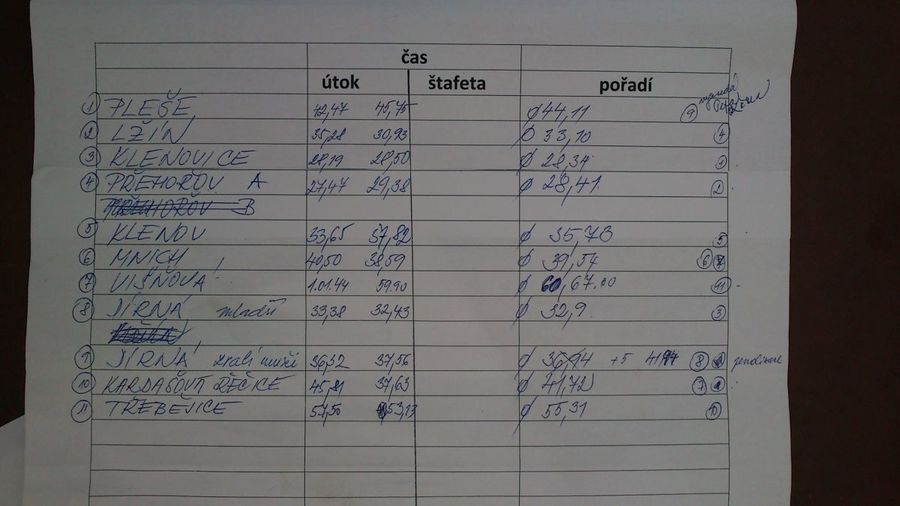 čas
útok štafeta pořadí
① PLEŠE, 42,47 45,75 ø 44,11 ⑨
② LŽÍN 35,28 30,93 ø 33,10 ④
③ KLENOVICE 28,19 28,50 ø 28,34 ①
④ PŘEHOŘOV A 27,47 29,38 ø 28,41 ②
PŘEHOŘOV B
⑤ KLENOV 33,65 37,82 ø 35,73 ⑤
⑥ MNICH 40,50 38,59 ø 39,54 ⑥
⑦ VIŠŇOVÁ 1.01.44 59.90 ø 60,67.00 ⑪
⑧ JÍRNÁ mladší 33,38 32,43 ø 32,9 ③
⑨ JÍRNÁ muži 36,32 37,56 ø 36,94 +5 41,94 ⑧
⑩ KARDAŠOVA ŘEČICE 45,81 37,63 ø 41,72 ⑦
⑪ TŘEBĚJICE 57,50 53,13 ø 55,31 ⑩